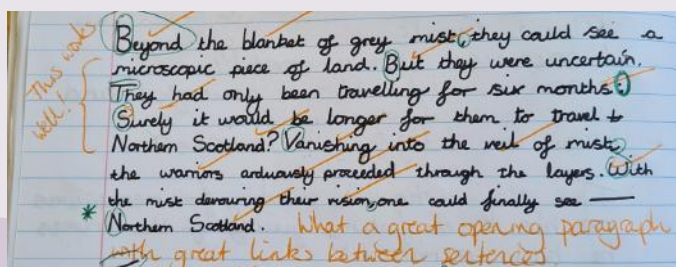 Beyond the blanket of grey mist, they could see a
This works well!
microscopic piece of land. But they were uncertain.
They had only been travelling for six months:
Surely it would be longer for them to travel to
Northern Scotland? Vanishing into the veil of mist,
the warriors arduously proceeded through the layers. With
the mist devouring their vision, one could finally see —
* Northern Scotland. What a great opening paragraph
with great links between sentences